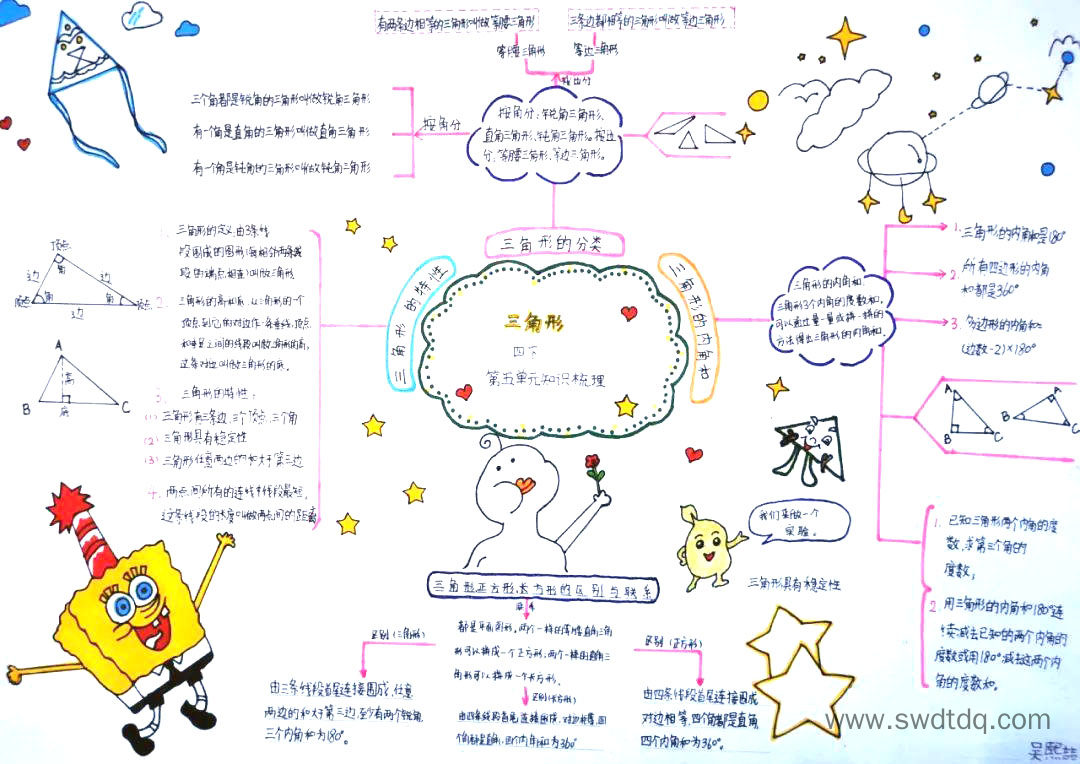 有两条边相等的三角形叫做等腰三角形
三条边都相等的三角形叫做等边三角形
等腰三角形
等边三角形
按边分
三个角都是锐角的三角形叫做锐角三角形
有一个角是直角的三角形叫做直角三角形
有一个角是钝角的三角形叫做钝角三角形
按角分
按角分:锐角三角形、
直角三角形、钝角三角形。按边
分,等腰三角形、等边三角形。
三角形的分类
三角形的特性
三角形的内角和
三角形
四下
第五单元知识梳理
1. 三角形的定义:由3条线
段围成的图形(每相邻两条线
段的端点相连)叫做三角形
2. 三角形的高和底:从三角形的一个
顶点到它的对边作一条垂线,顶点
和垂足之间的线段叫做三角形的高,
这条对边叫做三角形的底。
3. 三角形的特性:
(1) 三角形有三条边、三个顶点、三个角
(2) 三角形具有稳定性
(3) 三角形任意两边的和大于第三边
4. 两点间所有的连线中线段最短,
这条线段的长度叫做两点间的距离
顶点
角
边
边
顶点
角
角
顶点
边
A
高
B
底
C
三角形的内角和:
三角形3个内角的度数和,
可以通过量一量或拼一拼的
方法得出三角形的内角和.
1. 三角形的内角和是180°
2. 所有四边形的内角
和都是360°
3. 多边形的内角和=
(边数-2)×180°
A
B
C
A
B
C
1. 已知三角形两个内角的度
数,求第三个角的
度数;
2. 用三角形的内角和180°连
续减去已知的两个内角的
度数或用180°减去这两个内
角的度数和。
我们来做一个
实验。
三角形具有稳定性
三角形正方形,长方形的区别与联系
联系
都是平面图形,两个一样的等腰直角三角
形可以拼成一个正方形;两个一样的直角三
角形可以拼成一个长方形.
区别(三角形)
由三条线段首尾连接围成,任意
两边的和大于第三边,至少有两个锐角,
三个内角和为180°。
区别(长方形)
由四条线段首尾连接围成,对边相等,四
个角都是直角,四个内角和为360°
区别(正方形)
由四条线段首尾连接围成
对边相等,四个角都是直角,
四个内角和为360°。
www.swdtdq.com
吴熙喆